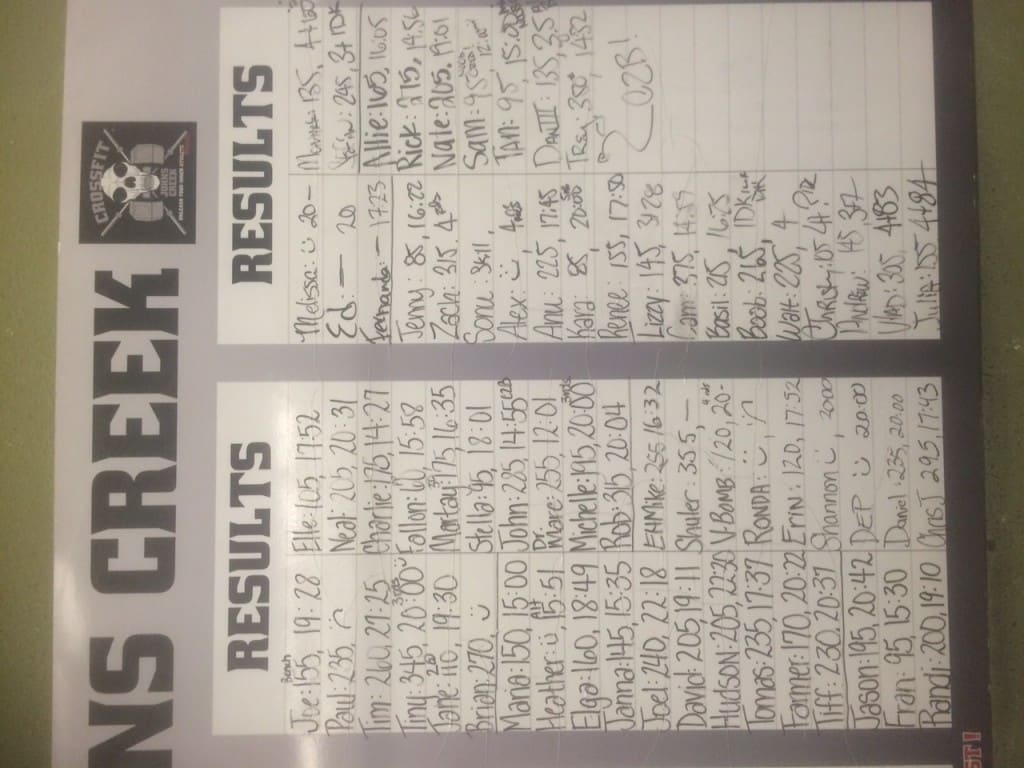 NS CREEK
CROSSFIT
RESULTS
Joe: 155, 19:28
Paul: 235,
Tim: 260, 27:25
Timu: 345, 20:00
Jane: 110, 19:30
Brian: 270,
Maria: 150, 15:00
Heather: 15:51
Elga: 160, 18:49
Janna: 145, 15:35
Joel: 240, 22:18
David: 205, 19:11
Hudson: 205, 22:30
Tomas: 235, 17:37
Farmer: 170, 20:22
Tiff: 230, 20:37
Jason: 195, 20:42
Fran: 95, 15:30
Rand: 200, 19:10
Elle: 105, 17:52
Neal: 205, 20:31
Charlie: 176, 14:27
Fallon: 15:58
Mortay: 175, 16:35
Stella: 45, 18:01
John: 225, 14:55
Dr. Marc: 255, 12:01
Michelle: 195, 20:00
Rob: 315, 20:04
EHMKE: 255, 16:32
Shuler: 355, —
V Bomb: 120, 20-
RONDA:
Erin: 120, 17:52
Shannon 2000
DEP 20:00
Daniel: 235, 20:00
Chris J 295, 17:43
RESULTS
Melissa: 20 —
Ed: — 20
Fernando: — 17:23
Jenny: 85, 16:22
Zach: 315, 4
Sonu: 3411,
Alex:
Anu: 225, 17:45
Kara: 85, 20:00
Renee: 155, 17:50
Lizzy: 145, 3r28
Cam: 375, 14:59
Bosh: 215, 16:25
Boob: 265, 1DK
Walt: 225, 4
Christy: 105
Andrew: 145
Vlad: 305, 4r83
Julia: 155 4r84
RESULTS
245, 3r 1DK
Allie: 165, 16:05
Rick: 275, 19:56
Nate: 205, 19:01
Sam: 95
Ian: 95, 15:00
DAN III 135, 3r35
Tresy: 350, 1452